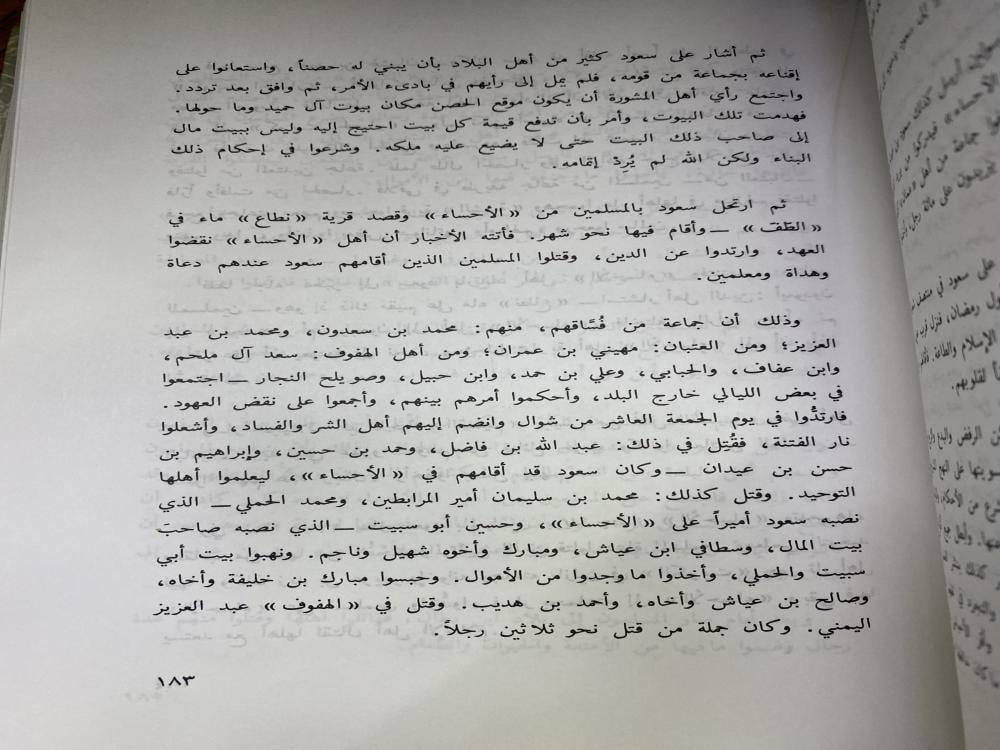 ثم أشار على سعود كثير من أهل البلاد بأن يبني له حصناً، واستعانوا على
إقناعه بجماعة من قومه، فلم يمل إلى رأيهم في بادىء الأمر، ثم وافق بعد تردد.
واجتمع رأي أهل المشورة أن يكون موقع الحصن مكان بيوت آل حميد وما حولها.
فهدمت تلك البيوت، وأمر بأن تدفع قيمة كل بيت احتيج إليه وليس ببيت مال
إلى صاحب ذلك البيت حتى لا يضيع عليه ملكه. وشرعوا في إحكام ذلك
البناء ولكن الله لم يُرِدْ إتمامه.
ثم ارتحل سعود بالمسلمين من «الأحساء» وقصد قرية «نطاع» ماء في
«الطَفّ» — وأقام فيها نحو شهر. فأتته الأخبار أن أهل «الأحساء» نقضوا
العهد، وارتدوا عن الدين، وقتلوا المسلمين الذين أقامهم سعود عندهم دعاة
وهداة ومعلمين.
وذلك أن جماعة من فُسَّاقهم، منهم: محمد بن سعدون، ومحمد بن عبد
العزيز؛ ومن العتبان: مهيني بن عمران؛ ومن أهل الهفوف: سعد آل ملحم،
وابن عفاف، والحبابي، وعلي بن حمد، وابن حبيل، وصويلح النجار — اجتمعوا
في بعض الليالي خارج البلد، وأحكموا أمرهم بينهم، وأجمعوا على نقض العهود.
فارتدُّوا في يوم الجمعة العاشر من شوال وانضم إليهم أهل الشر والفساد، وأشعلوا
نار الفتنة، فقُتِل في ذلك: عبد الله بن فاضل، وحمد بن حسين، وإبراهيم بن
حسن بن عيدان — وكان سعود قد أقامهم في «الأحساء»، ليعلموا أهلها
التوحيد. وقتل كذلك: محمد بن سليمان أمير المرابطين، ومحمد الحملي — الذي
نصبه سعود أميراً على «الأحساء»، وحسين أبو سبيت — الذي نصبه صاحبَ
بيت المال، وسطافي ابن عياش، ومبارك وأخوه شهيل وناجم. ونهبوا بيت أبي
سبيت والحملي، وأخذوا ما وجدوا من الأموال. وحبسوا مبارك بن خليفة وأخاه،
وصالح بن عياش وأخاه، وأحمد بن هديب. وقتل في «الهفوف» عبد العزيز
اليمني. وكان جملة من قتل نحو ثلاثين رجلاً.
١٨٣